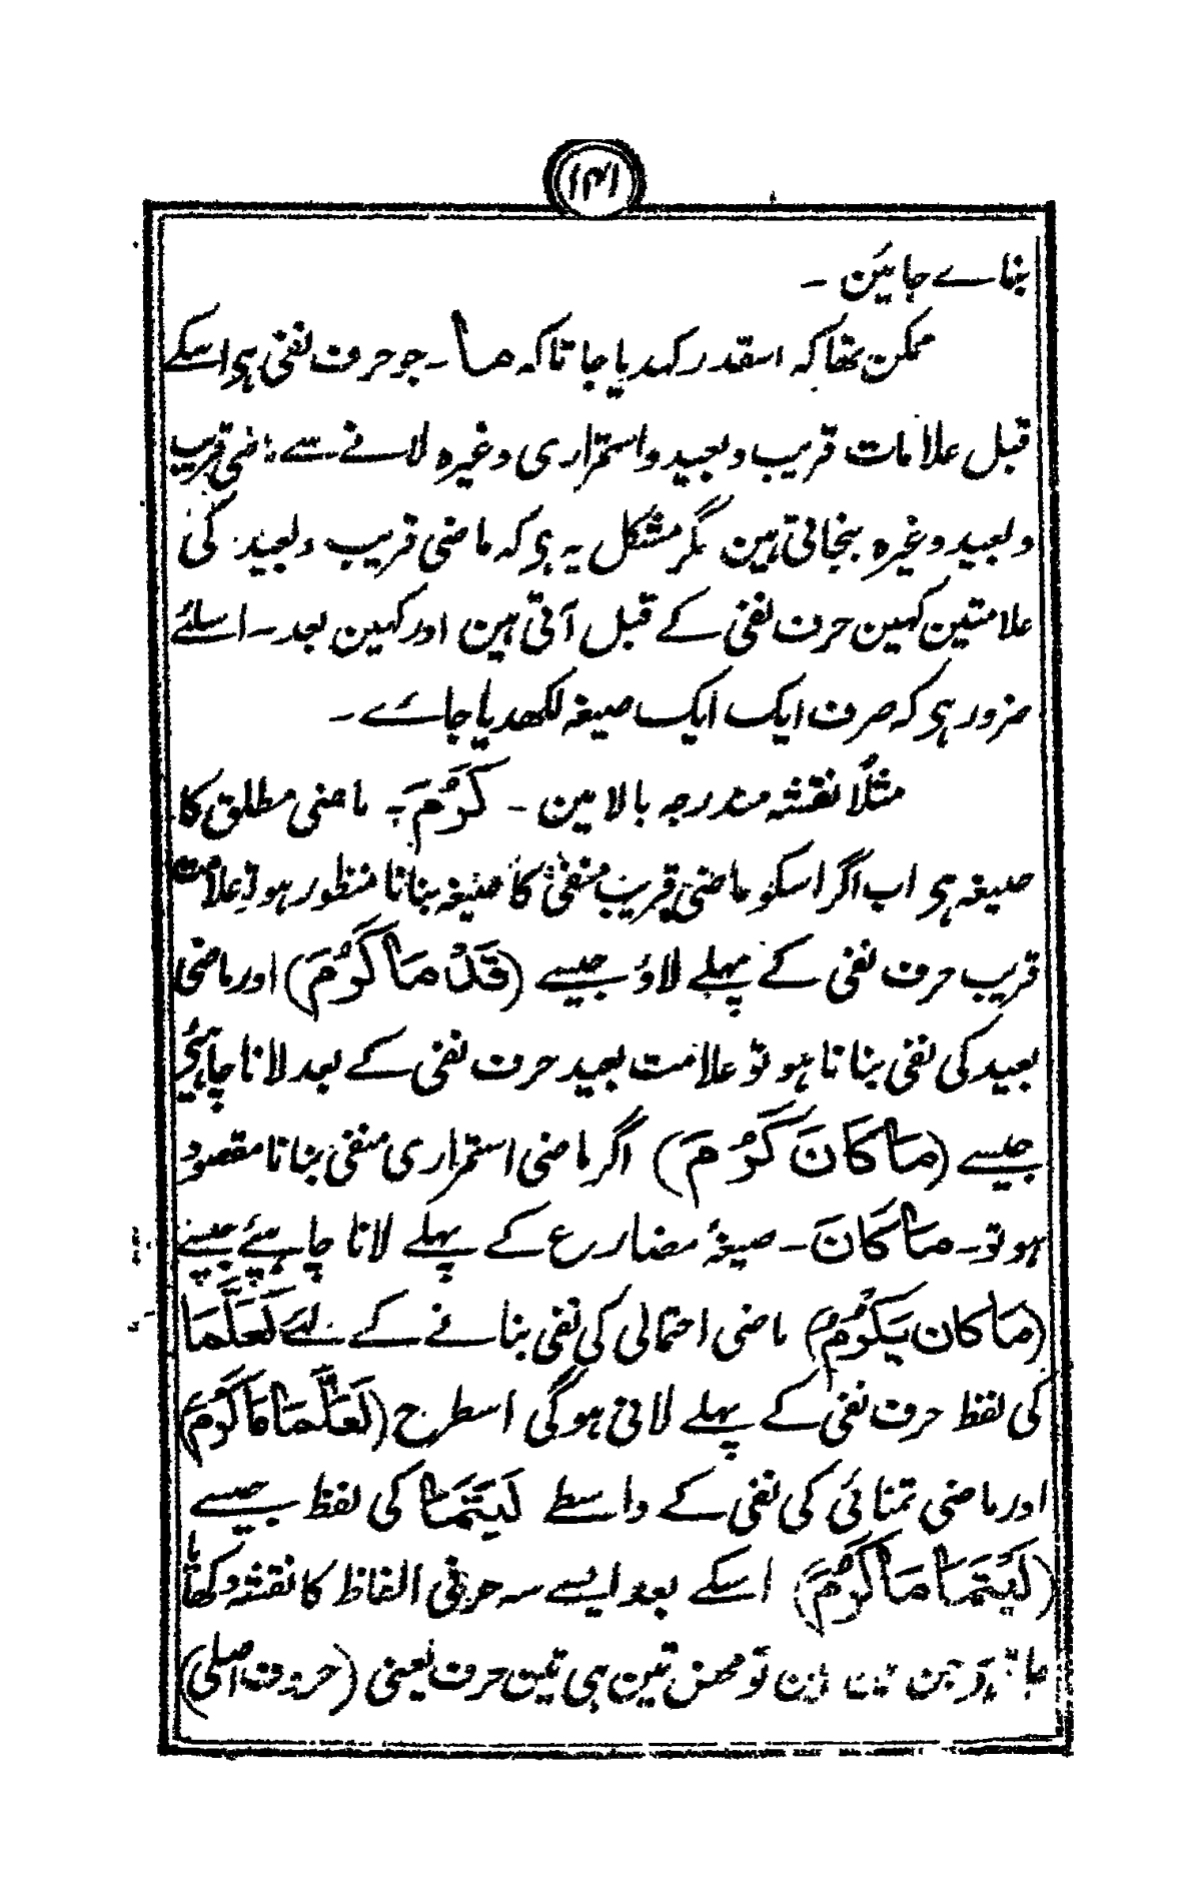 ۱۴۱
بنائے جائین ۔
ممکن تھا کہ اسقدر کہدیا جاتا کہ مـا ۔ جو حرف نفی ہی اسکے
قبل علامات قریب و بعید و استمراری وغیرہ لانے سے ماضی قریب
و بعید وغیرہ بنجاتی ہین مگر مشکل یہ ہی کہ ماضی قریب و بعید کی
علامتین کہین حرف نفی کے قبل آتی ہین اور کہین بعد ۔ اسلئے
ضرور ہی کہ صرف ایک ایک صیغہ لکھدیا جائے ۔
مثلًا نقشہ مندرجہ بالا مین ۔ کَرُمَ ۔ ماضی مطلق کا
صیغہ ہی اب اگر اسکو ماضی قریب منفی کا صیغہ بنانا منظور ہو تو علامت
قریب حرف نفی کے پہلے لاؤ جیسے (قَدْ مَا کَرُمَ) اور ماضی
بعید کی نفی بنانا ہو تو علامت بعید حرف نفی کے بعد لانا چاہئے
جیسے (مَا کَانَ کَرُمَ) اگر ماضی استمراری منفی بنانا مقصود
ہو تو ۔ مَا کَانَ ۔ صیغۂ مضارع کے پہلے لانا چاہئے جیسے
(مَا کان یَکرُمُ) ماضی احتمالی کی نفی بنانے کے لئے لَعَلَّمَا
کی لفظ حرف نفی کے پہلے لانی ہوگی اسطرح (لَعَلَّمَا مَا کَرُمَ)
اور ماضی تمنائی کی نفی کے واسطے لَیتَمَا کی لفظ جیسے
(لَیْتَمَا مَا کَرُمَ) اسکے بعد ایسے سہ حرفی الفاظ کا نقشہ دکھایا
جاتا جن مین تو محض تین ہی تین حرف یعنی (حروف اصلی)